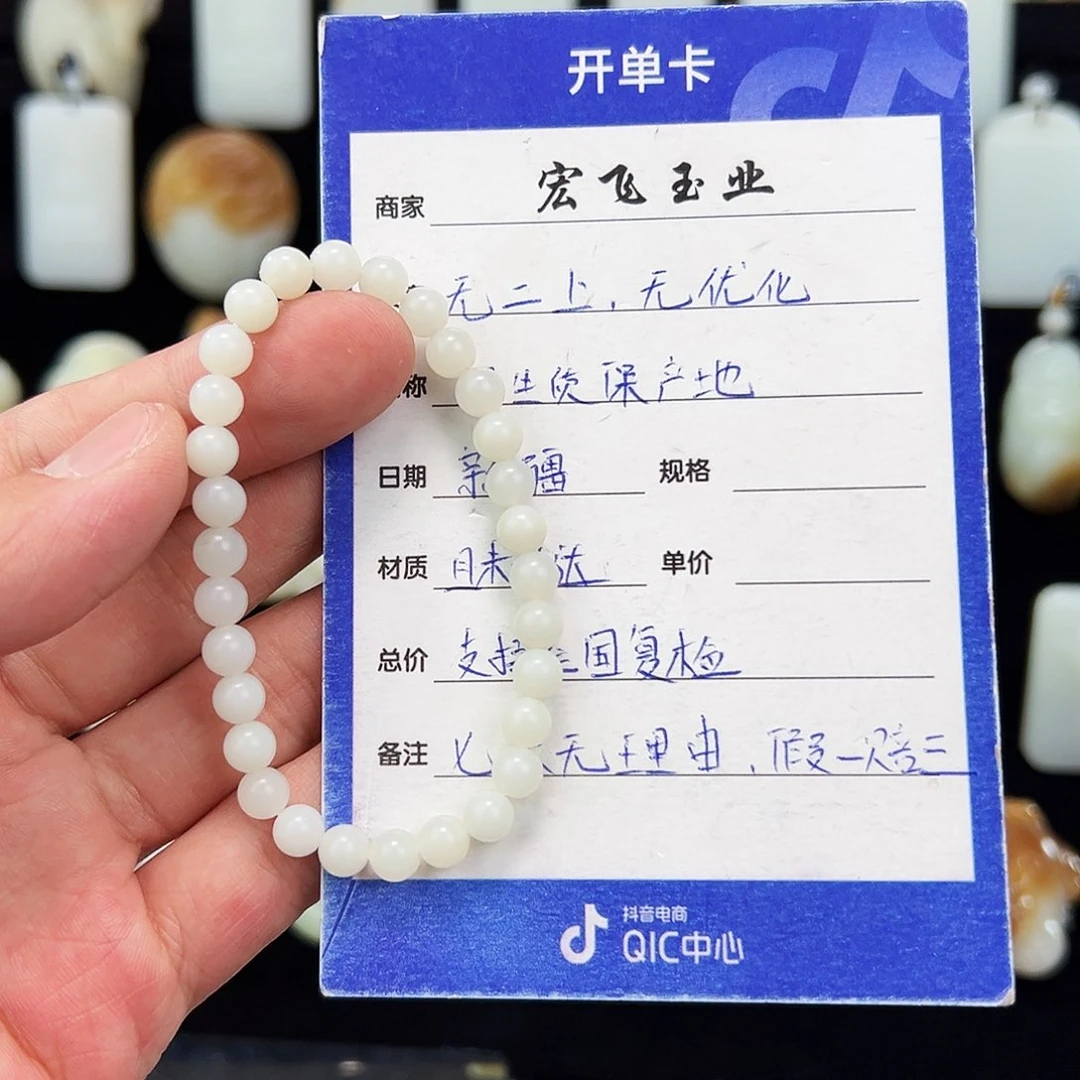 开单卡
商家 宏飞玉业
无二上，无优化
称 生质保产地
日期 新疆 规格
材质 且末 达 单价
总价 支持全国复检
备注 七天无理由，假一赔三
抖音电商
QIC中心